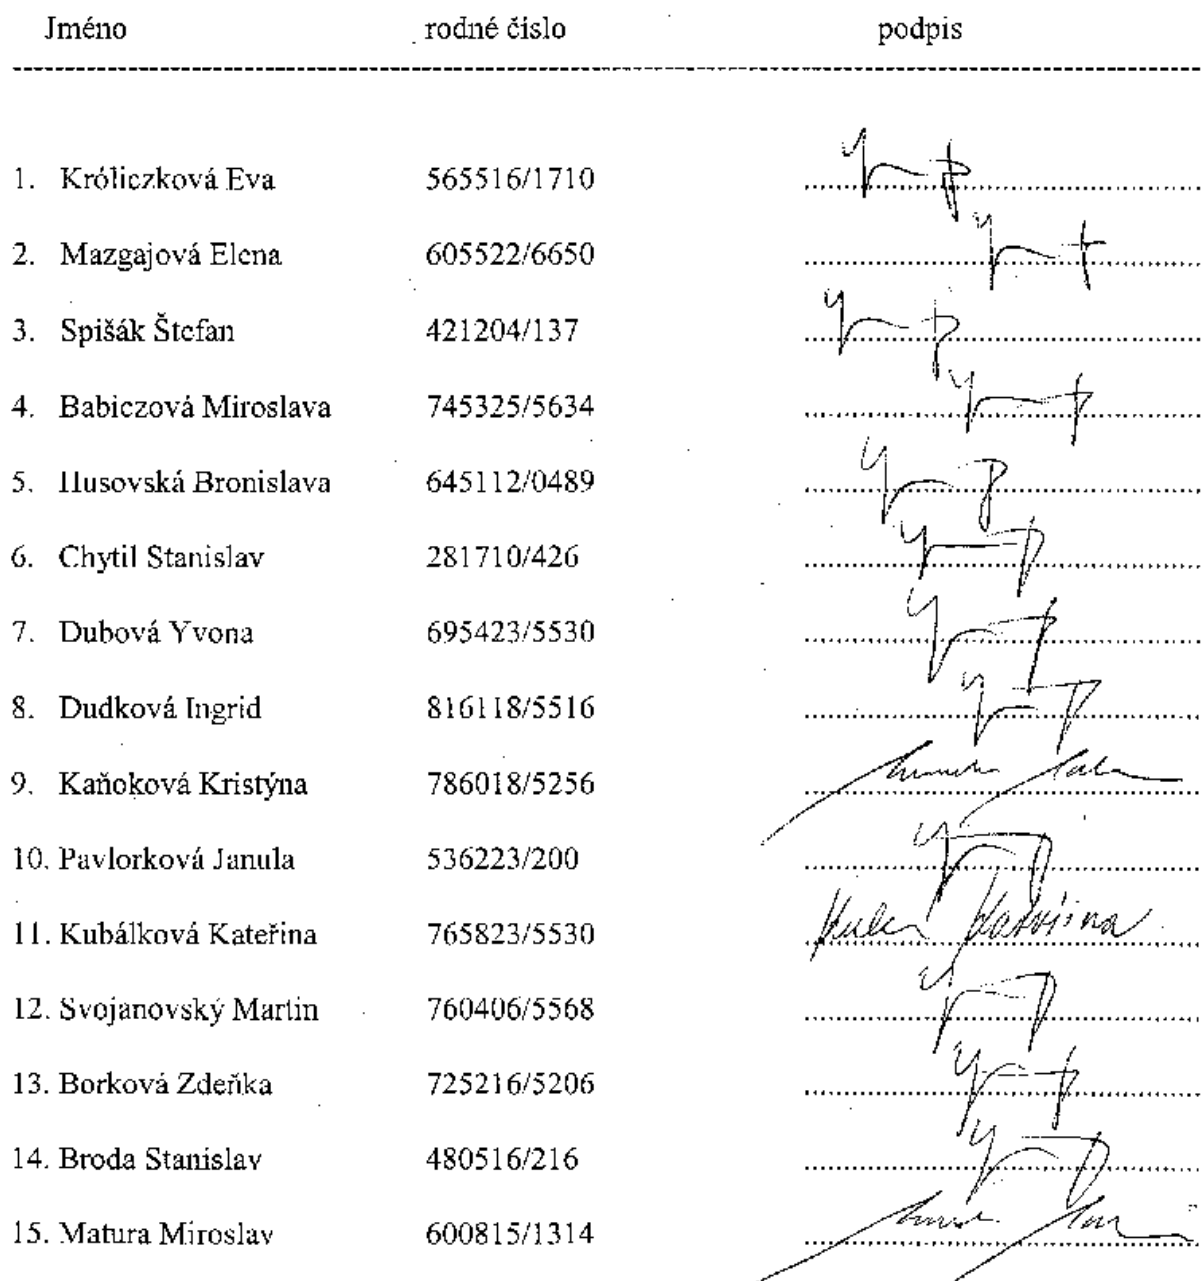 Jméno rodné číslo podpis
1. Króliczková Eva 565516/1710
2. Mazgajová Elena 605522/6650
3. Spišák Štefan 421204/137
4. Babiczová Miroslava 745325/5634
5. Husovská Bronislava 645112/0489
6. Chytil Stanislav 281710/426
7. Dubová Yvona 695423/5530
8. Dudková Ingrid 816118/5516
9. Kaňoková Kristýna 786018/5256
10. Pavlorková Janula 536223/200
11. Kubálková Kateřina 765823/5530
12. Svojanovský Martin 760406/5568
13. Borková Zdeňka 725216/5206
14. Broda Stanislav 480516/216
15. Matura Miroslav 600815/1314